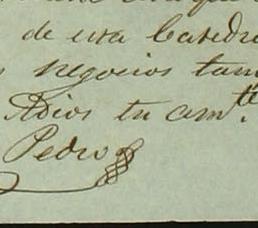 de esa Catedra
negocios tam
Adios tu am.te
Pedro